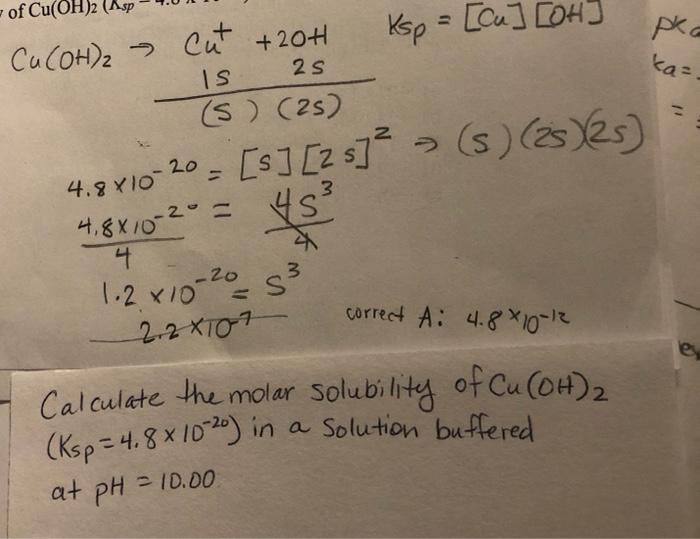 of Cu(OH)2 (Ksp
Cu(OH)2 → Cu+ + 2OH Ksp = [Cu] [OH]
1S 2S
(S) (2S)
4.8 x 10-20 = [S] [2S]2 → (S) (2S)(2S)
4.8 x 10-20 = 4S3
4 4
1.2 x 10-20 = S3
2.2 x 10-7 correct A: 4.8 x 10-12
Ka =
=
Calculate the molar solubility of Cu(OH)2
(Ksp = 4.8 x 10-20) in a solution buffered
at pH = 10.00